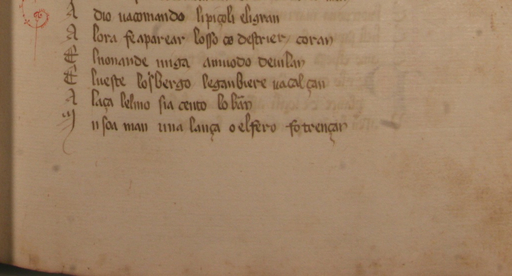 A dio uacomando li piçoli eligran
A lora fe aparear losso co destrier coran
E luonande miga amiodo deuilan
E lueste losbergo leganbiere uacalçan
A laça lelmo sia cento lo bran
In soa man una lança o elfero fo trençar